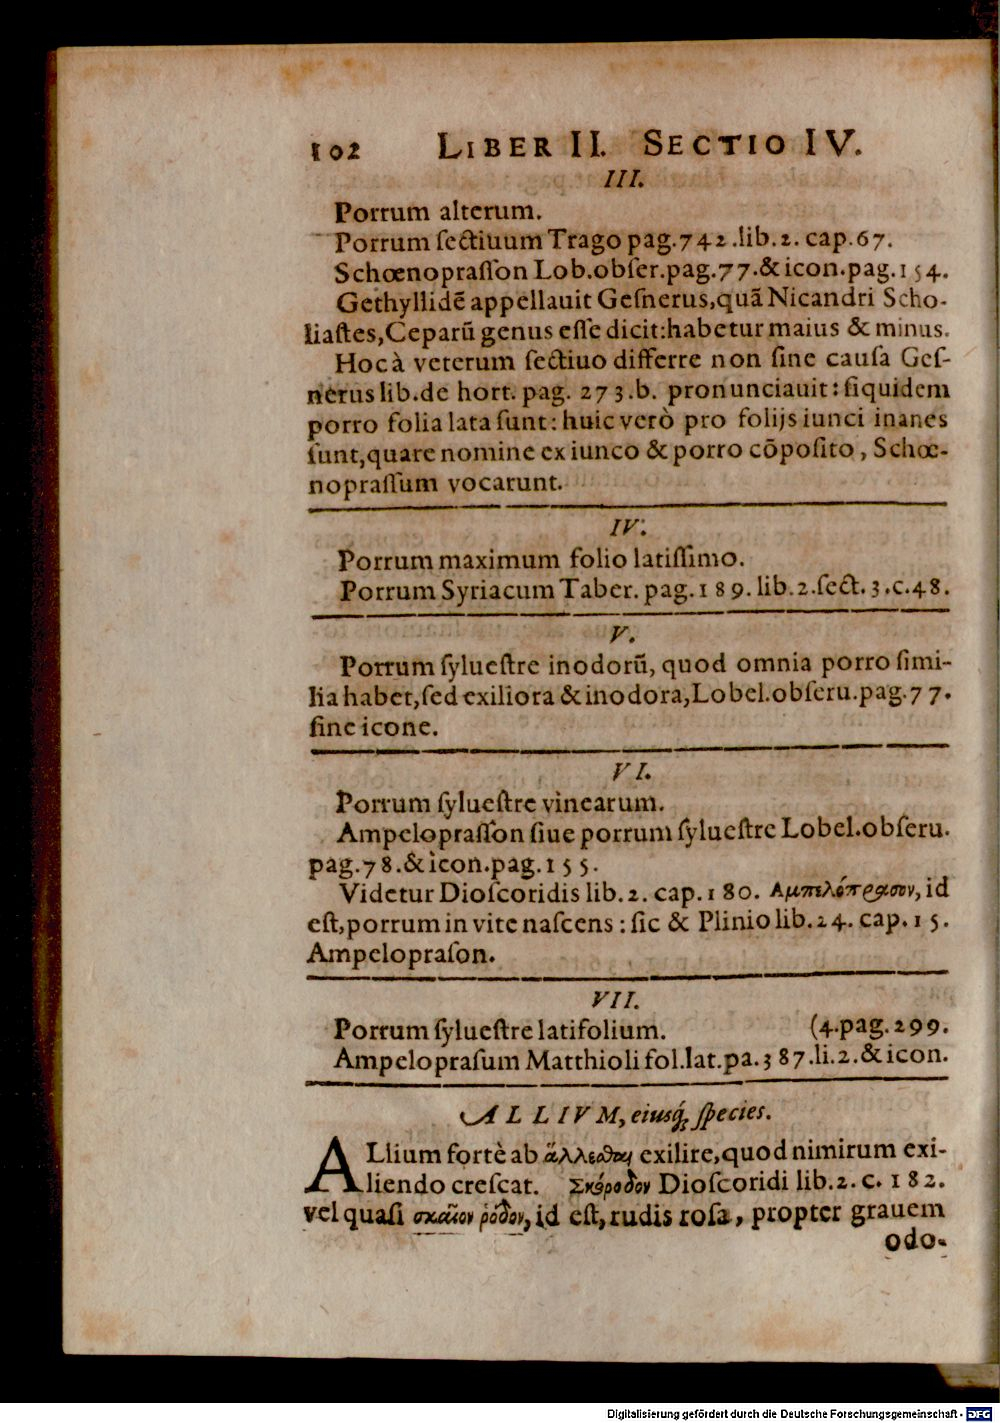 102 LIBER II. SECTIO IV.
III.
Porrum alterum.
Porrum ſectiuum Trago pag.742.lib.2. cap.67.
Schœnopraſſon Lob.obſer.pag.77.& icon.pag.154.
Gethyllidē appellauit Geſnerus,quā Nicandri Scho-
liaſtes,Ceparū genus eſſe dicit:habetur maius & minus.
Hoc à veterum ſectiuo differre non ſine cauſa Geſ-
nerus lib.de hort. pag. 273.b. pronunciauit: ſiquidem
porro folia lata ſunt: huic verò pro folijs iunci inanes
ſunt,quare nomine ex iunco & porro cōpoſito, Schœ-
nopraſſum vocarunt.
IV.
Porrum maximum folio latiſſimo.
Porrum Syriacum Taber. pag.189. lib.2.ſect.3.c.48.
V.
Porrum ſylueſtre inodorū, quod omnia porro ſimi-
lia habet,ſed exiliora & inodora,Lobel.obſeru.pag.77.
ſine icone.
VI.
Porrum ſylueſtre vinearum.
Ampelopraſſon ſiue porrum ſylueſtre Lobel.obſeru.
pag.78.& icon.pag.155.
Videtur Dioſcoridis lib.2. cap.180. Αμπελόπρασον, id
eſt,porrum in vite naſcens: ſic & Plinio lib.24. cap.15.
Ampelopraſon.
VII.
Porrum ſylueſtre latifolium. (4.pag.299.
Ampelopraſum Matthioli fol.lat.pa.387.li.2.& icon.
ALLIVM, eiusq́; ſpecies.
ALlium fortè ab ἅλλεσθαι exilire,quod nimirum exi-
liendo creſcat. Σκόροδον Dioſcoridi lib.2. c. 182.
vel quaſi σκαιὸν ῥόδον, id eſt, rudis roſa, propter grauem
odo-
Digitalisierung gefördert durch die Deutsche Forschungsgemeinschaft - DFG